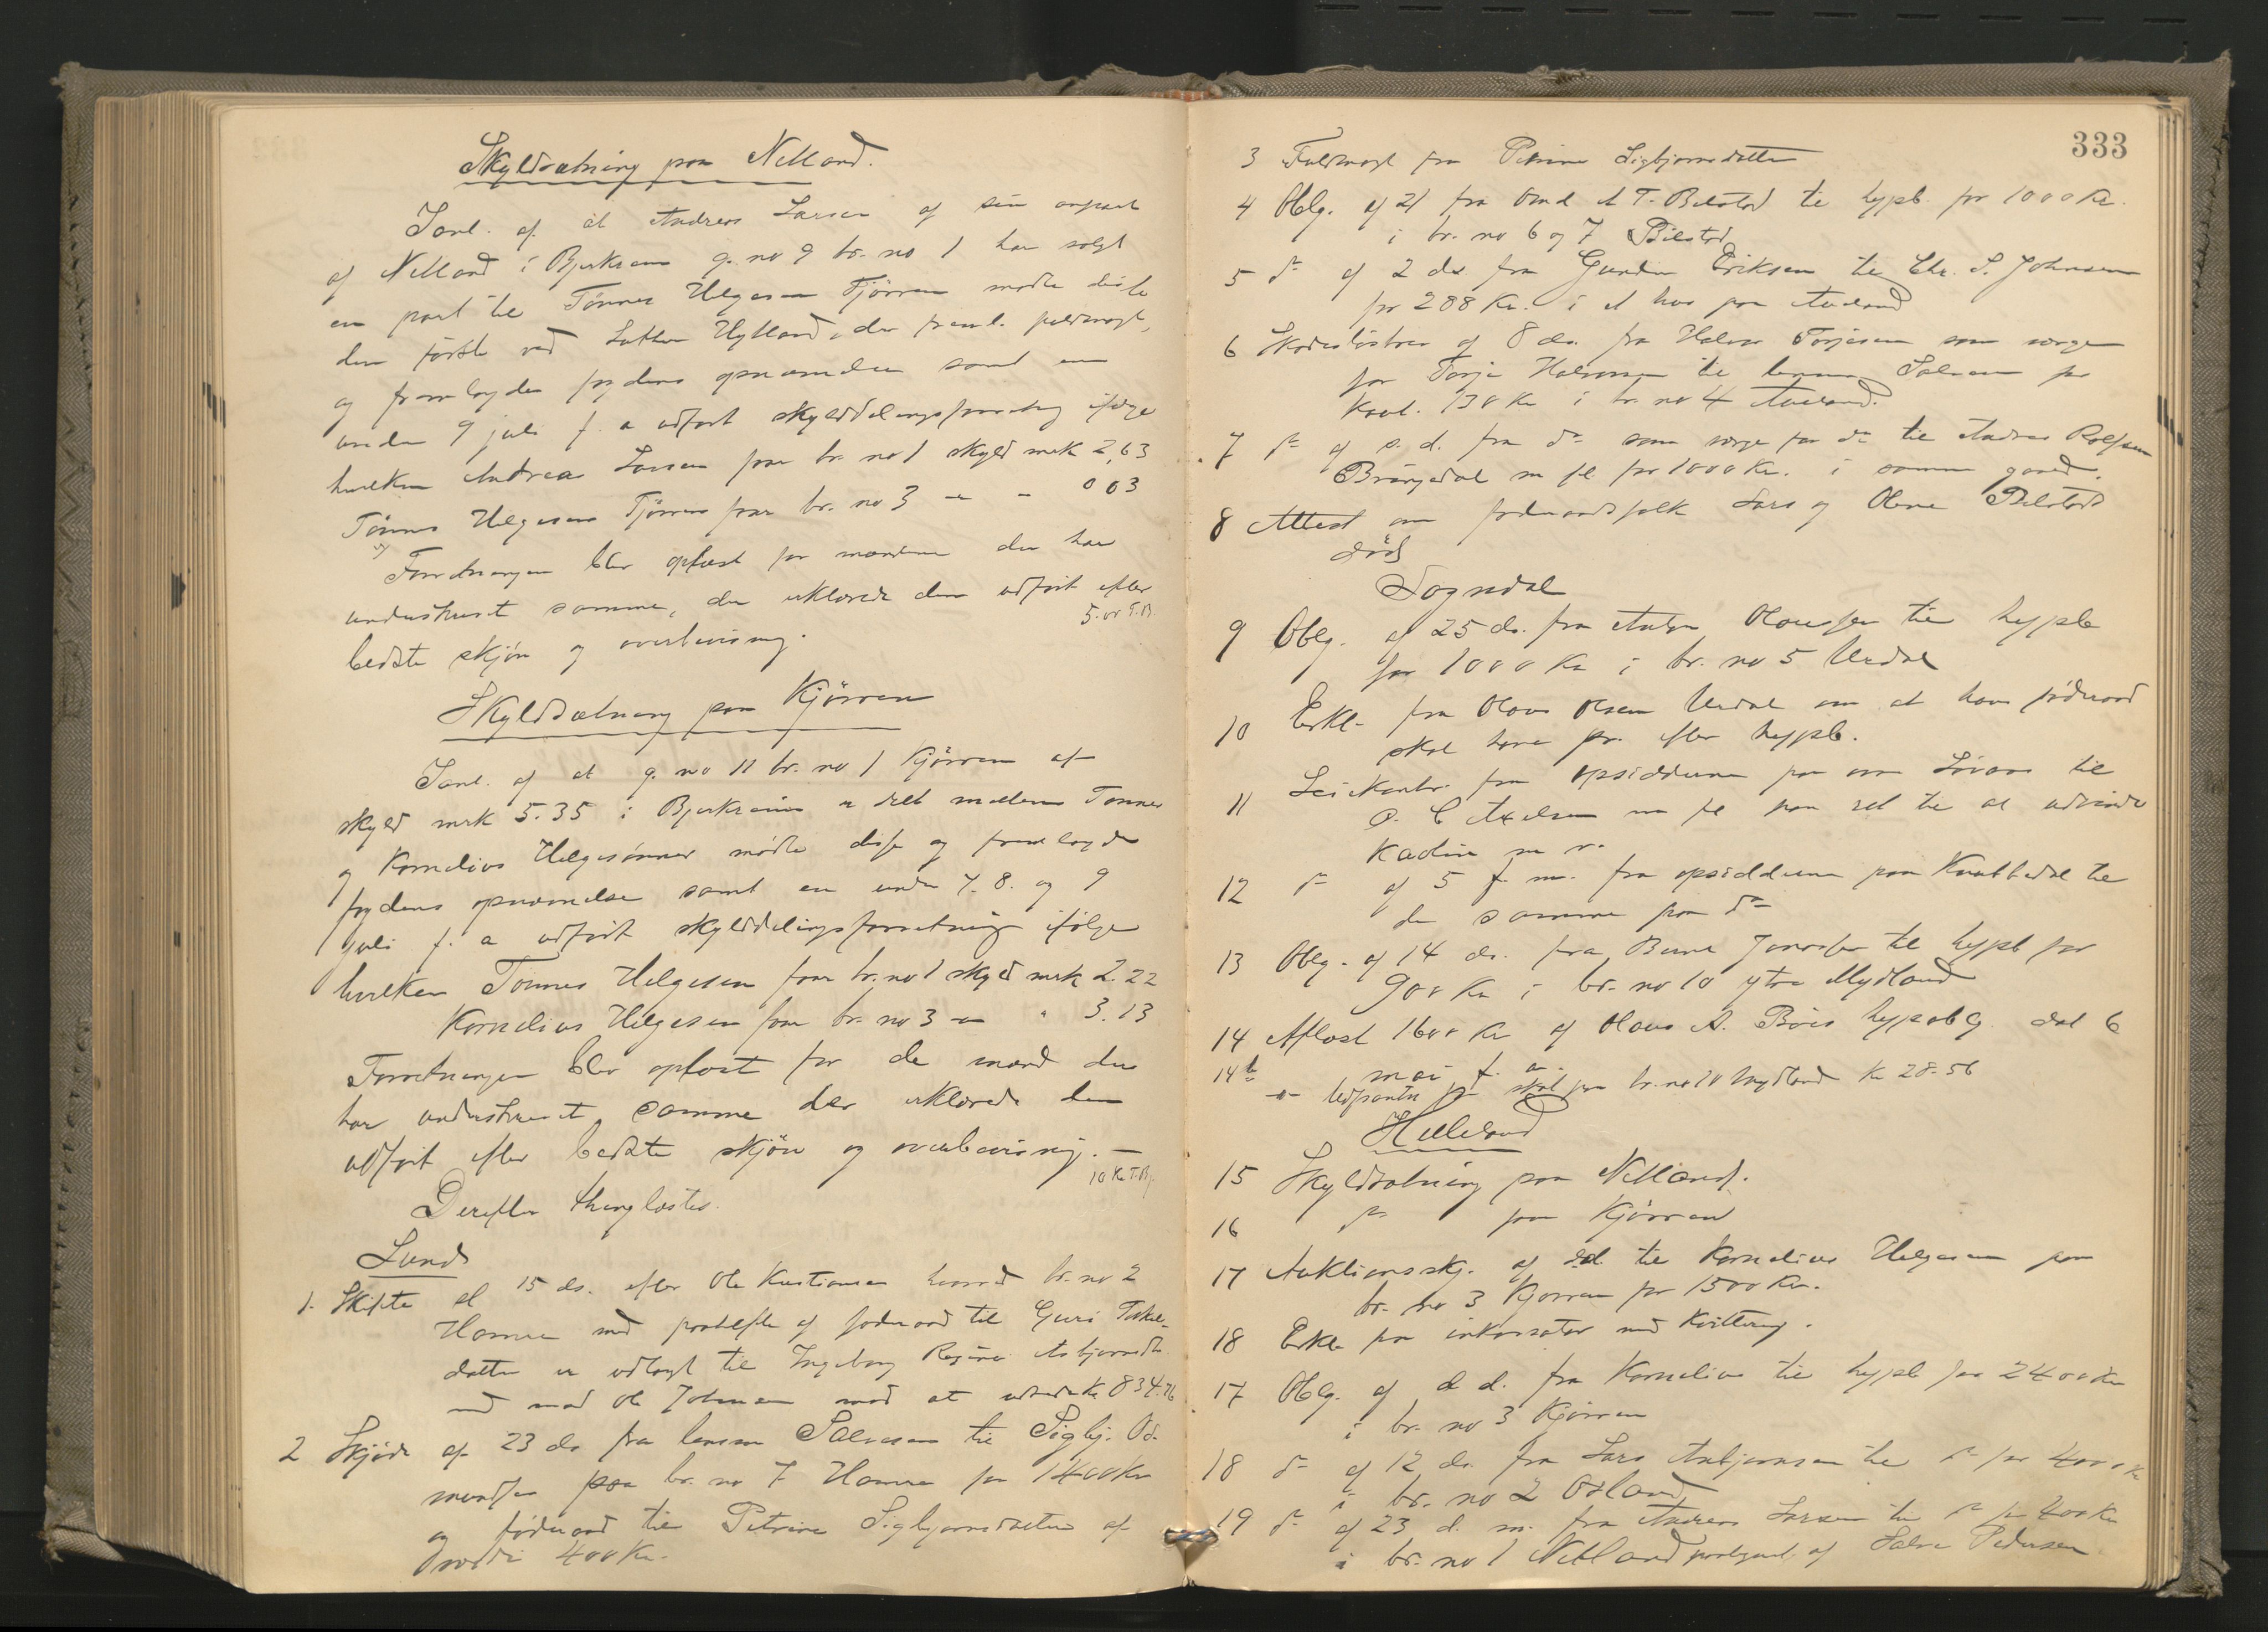 Skyldsætning paa Netland.
Sanl. af at Andreas Larsen af sin anpart
af Netland i Bjerkreim g. no 9 br. no 1 har solgt
en part til Tönnes Helgesen Tjörren mødte disse
den første ved Lathon Hylland, der freml. fuldmagt,
og fremlagde fogdens opnævnelse samt en
under 9 juli f. a udført skylddelingsforretning ifølge
hvilken Andreas Larsen faar br. no 1 skyld mrk 2,63
Tönnes Helgesen Tjörren faar br. no 3 - - 0 03
Forretningen blev oplæst for mændene der har
underskrevet samme, der erklærede den udført efter
bedste skjøn og overbevisning.
5. or T.B.
Skyldsætning paa Kjörren
Sanl. af at g. no 11 br. no 1 Kjörren af
skyld mrk 5.35 i Bjerkreim er delt mellem Tønnes
og Kornelius Helgesønner mødte disse og fremlagde
fogdens opnævnelse samt en under 7. 8. og 9
juli f. a udført skylddelingsforretning ifølge
hvilken Tönnes Helgesen faar br. no 1 skyld mrk 2.22
Kornelius Helgesen faar br. no 3 - " 3.13
Forretningen blev oplæst for de mænd der
har underskrevet samme der erklærede den
udført efter bedste skjön og overbevisning. —
10 Kr T.B.
Derefter thinglæstes.
Lund
1. Skifte af 15 ds. efter Ole Kristiansen hvorved br. no 2
Hamre med paahefte af føderaad til Guri Tarkels-
datter er udlagt til Ingeborg Regine Asbjørnsdtr
med mand Ole Johnsen mod at udrede Kr 834.76
2 Skjöde af 23 ds fra lensm Salvesen til Sigbj. Od-
mundsen paa br. no 7 Hamre for 1400 Kr
og föderaad til Petrine Sigbjørnsdatter af
værdi 400 Kr.
333
3 Fuldmagt fra Petrine Sigbjørnsdatter
4 Oblg. af 21 fra Omd A T. Bilstad til hypb. for 1000 Kr.
i br. no 6 og 7 Bilstad
5 do af 2 ds fra Gunder Eriksen til Chr. S. Johnsen
for 288 Kr. i et hus paa Aaland
6 Skadesløsbrev af 8 ds. fra Halvor Torjesen som værge
for Torje Halvorsen til lensm. Salvesen for
kaut. 130 Kr i br. no 4
7 do af s. d. fra do som værge for do til Andreas Rolfsen
Bringedal m fl for 1000 Kr. i samme gaard.
8 Attest om föderaadsfolk Lars og Olene Bilstads
död
Sogndal
9 Oblg. af 25 ds. fra Anton Olaussen til hypb
for 1000 Kr i br. no 5 Urdal
10 Erkl. fra Olaus Olsen Urdal om at hans föderaad
skal have pr. efter hypb.
11 Leiekontr. fra opsidderne paa til
O. C Axelsen m fl paa ret til at udvinde
Kaolin m v.
12 do af 5 f. m. fra opsidderne paa Knabbedal til
de samme paa do
13 Oblg. af 14 ds. fra Berne Jonassen til hypb for
900 Kr i br. no 10 ytre Mydland
14 Aflæst 1600 Kr af Olaus A. Böes hypobl. dat 6
mai f. a.
14b -"- Udpantn for skat paa br. no 10 Mydland Kr 28.56
Helleland
15 Skyldsætning paa Netland.
16 do paa Kjörren
17 Auktionsskj. af dd. til Kornelius Helgesen paa
br. no 3 Kjørren for 1500 Kr.
18 Erkl. fra inkassator med kvittering.
17 Oblg. af d d. fra Kornelius til hypb for 2400 Kr
i br. no 3 Kjörren
18 do af 12 ds. fra Lars Asbjørnsen til do for 4000 Kr
i br. no 2 Odland
19 do af 23 d. m. fra Andreas Larsen til do for 400 Kr
i br. no 1 Netland paategnet af Salve Pedersen